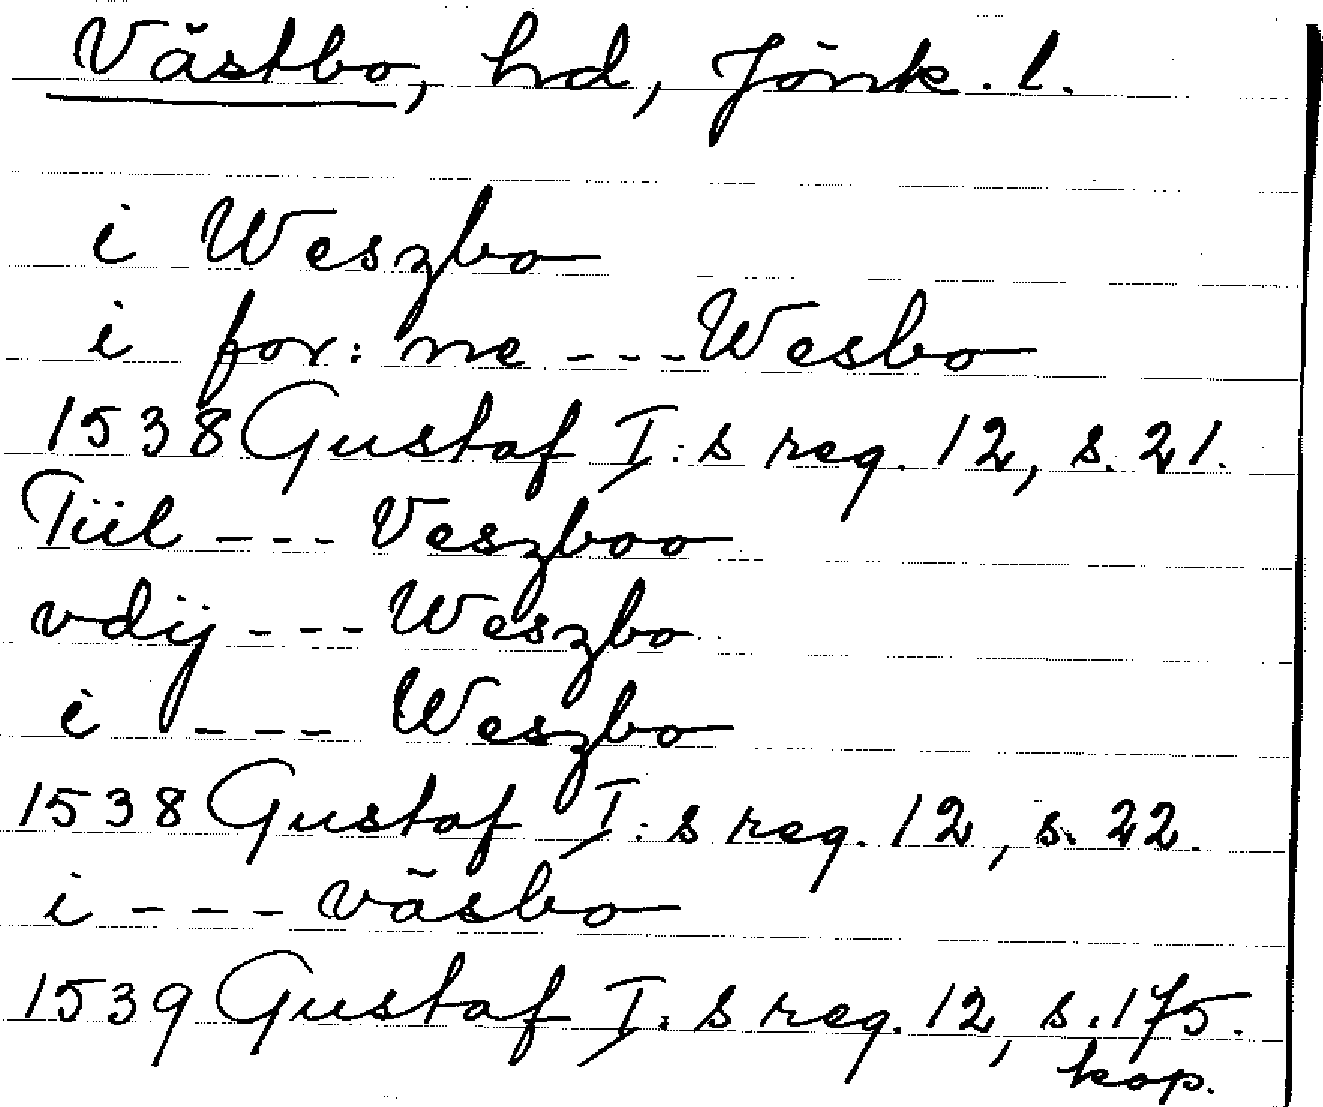 Västbo, hd, Jönk. l.
i Weszbo
i for: ne --- Wesbo
1538 Gustaf I:s reg. 12, s. 21.
Tiil --- Veszboo
vdij --- Weszbo
i --- Weszbo
1538 Gustaf I:s reg. 12, s. 22.
i --- väsbo
1539 Gustaf I:s reg. 12, s. 175.
kop.